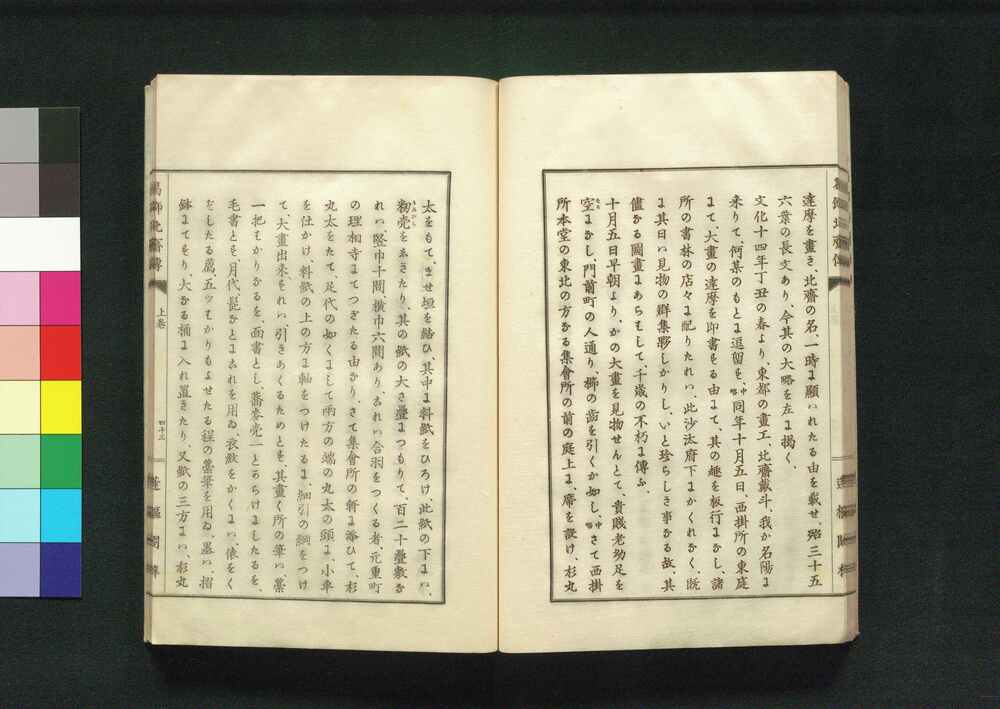 達摩を畫き、北齋の名、一時に顯はれたる由を載せ、殆三十五
六葉の長文あり、今其の大略を左に掲く、
文化十四年丁丑の春より、東都の畫工、北齋戴斗、我か名陽に
來りて、何某のもとに逗留を、中略同年十月五日、西掛所の東庭
にて、大畫の達摩を即書する由にて、其の趣を板行になし、諸
所の書林の店々に配りたれは、此沙汰府下にかくれなく、既
に其日は見物の群集夥しかりし、いと珍らしき事なる故、其
儘なる圖畫にあらはして、千歳の不朽に傳ふ、
十月五日早朝より、かの大畫を見物せんとて、貴賤老幼足を
空になし、門前町の人通り、櫛の歯を引くか如し、中略さて西掛
所本堂の東北の方なる集會所の前の庭上に、席を設け、杉丸
太をもて、ませ垣を結ひ、其中に料紙をひろけ、此紙の下には、
籾売をしきたり、其の紙の大さ疊につもりて、百二十疊敷な
れは、竪巾十間、横巾六間あり、これは合羽をつくる者、元重町
の理相寺にてつぎたる由なり、さて集會所の軒に添ひて、杉
丸太をたて、足代の如くにして、兩方の端の丸太の頭に、小車
を仕かけ、料紙の上の方に軸をつけたるに、細引の綱をつけ
て、大畫出來すれは、引きあくるためとす、其畫く所の筆は藁
一把はかりなるを、面書とし、蕎麥売一とらちけましたるを、
毛書とし、月代、髭なとはこれを用ゐ、衣紋をかくには、俵をく
をしたる藁、五ツはかりもよせたる程の藁筆を用ゐ、墨は、摺
鉢にてすり、大なる桶に入れ置きたり、又紙の三方には、杉丸
葛飾北齋傳
上巻
四十三
蓬樞閣梓